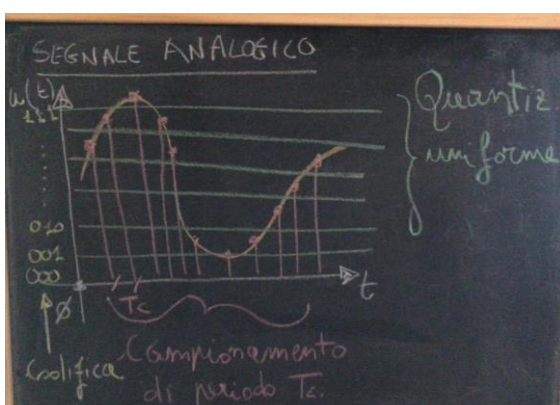 SEGNALE ANALOGICO
u(t)
111
010
001
000
Ø
Tc
t
Quantiz
uniforme
Codifica
Campionamento
di periodo Tc.